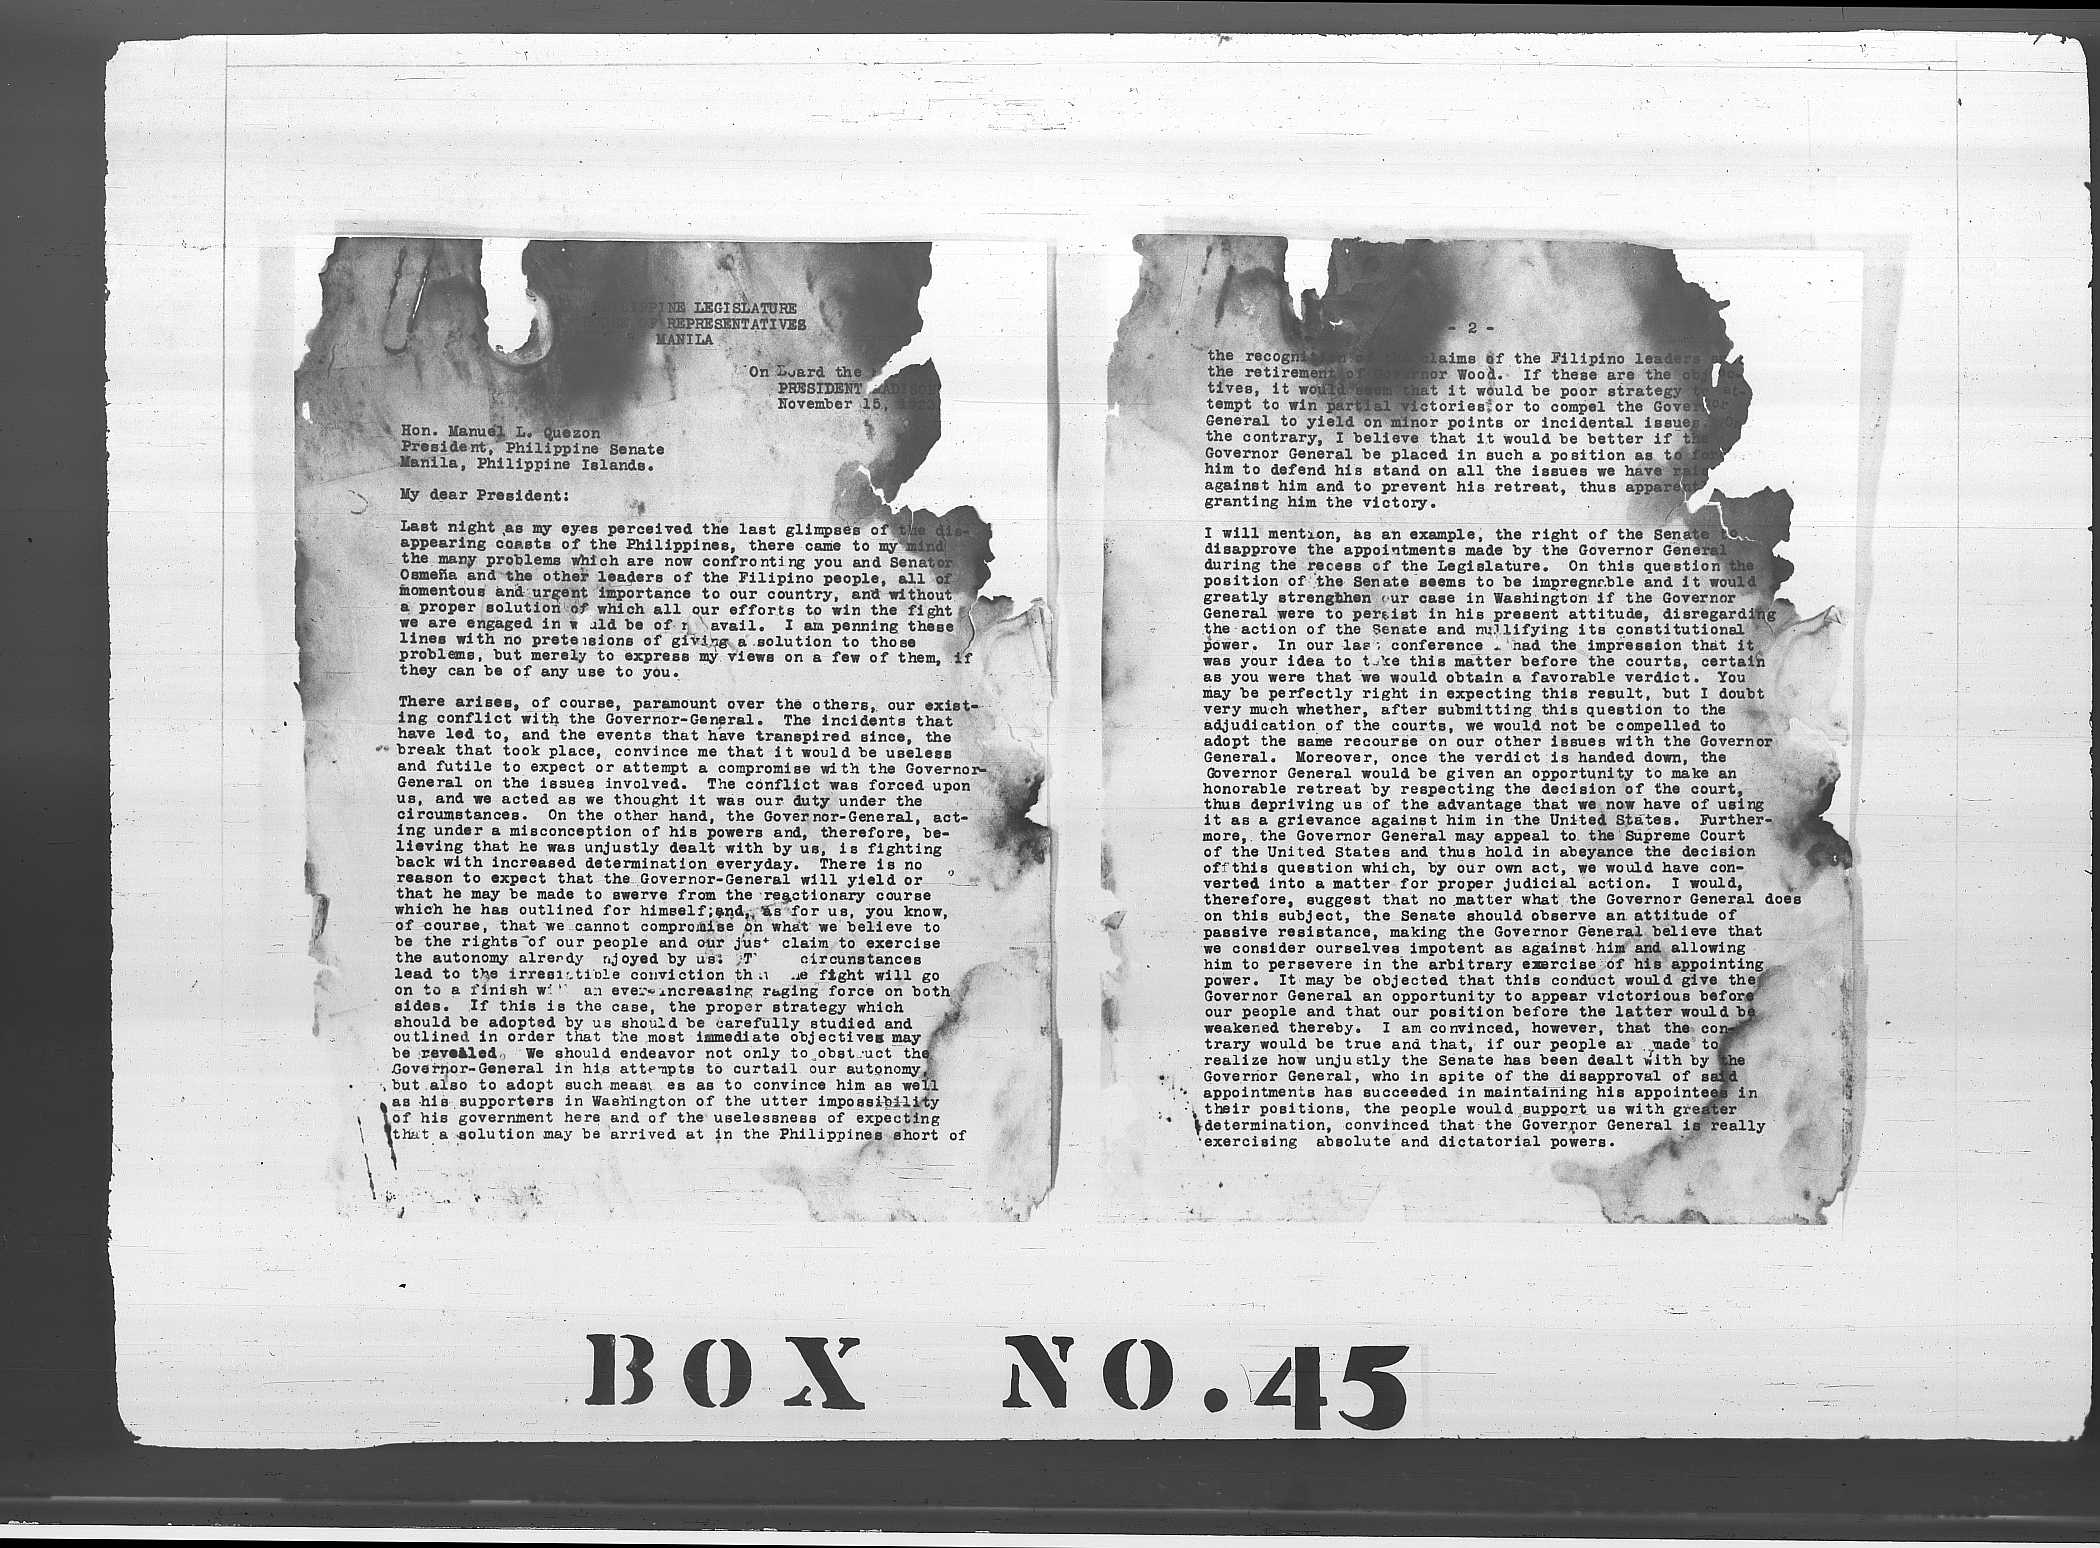 PHILIPPINE LEGISLATURE
HOUSE OF REPRESENTATIVES
MANILA
On Board the
PRESIDENT MADISON
November 15,
Hon. Manuel L. Quezon
President, Philippine Senate
Manila, Philippine Islands.
My dear President:
Last night as my eyes perceived the last glimpses of the dis-
appearing coasts of the Philippines, there came to my mind
the many problems which are now confronting you and Senator
Osmeña and the other leaders of the Filipino people, all of
momentous and urgent importance to our country, and without
a proper solution of which all our efforts to win the fight
we are engaged in would be of no avail. I am penning these
lines with no pretensions of giving a solution to those
problems, but merely to express my views on a few of them, if
they can be of any use to you.
There arises, of course, paramount over the others, our exist-
ing conflict with the Governor-General. The incidents that
have led to, and the events that have transpired since, the
break that took place, convince me that it would be useless
and futile to expect or attempt a compromise with the Governor-
General on the issues involved. The conflict was forced upon
us, and we acted as we thought it was our duty under the
circumstances. On the other hand, the Governor-General, act-
ing under a misconception of his powers and, therefore, be-
lieving that he was unjustly dealt with by us, is fighting
back with increased determination everyday. There is no
reason to expect that the Governor-General will yield or
that he may be made to swerve from the reactionary course
which he has outlined for himself;and, as for us, you know,
of course, that we cannot compromise on what we believe to
be the rights of our people and our just claim to exercise
the autonomy already enjoyed by us. circumstances
lead to the irresistible conviction that the fight will go
on to a finish with an ever-increasing raging force on both
sides. If this is the case, the proper strategy which
should be adopted by us should be carefully studied and
outlined in order that the most immediate objectives may
be revealed. We should endeavor not only to obstruct the
Governor-General in his attempts to curtail our autonomy,
but also to adopt such measures as to convince him as well
as his supporters in Washington of the utter impossibility
of his government here and of the uselessness of expecting
that a solution may be arrived at in the Philippines short of
- 2 -
the recognition of the claims of the Filipino leaders
the retirement of Governor Wood. If these are the objec-
tives, it would seem that it would be poor strategy to at-
tempt to win partial victories,or to compel the Governor
General to yield on minor points or incidental issues. On
the contrary, I believe that it would be better if the
Governor General be placed in such a position as to force
him to defend his stand on all the issues we have raised
against him and to prevent his retreat, thus apparently
granting him the victory.
I will mention, as an example, the right of the Senate to
disapprove the appointments made by the Governor General
during the recess of the Legislature. On this question the
position of the Senate seems to be impregnable and it would
greatly strengthen our case in Washington if the Governor
General were to persist in his present attitude, disregarding
the action of the Senate and nullifying its constitutional
power. In our last conference I had the impression that it
was your idea to take this matter before the courts, certain
as you were that we would obtain a favorable verdict. You
may be perfectly right in expecting this result, but I doubt
very much whether, after submitting this question to the
adjudication of the courts, we would not be compelled to
adopt the same recourse on our other issues with the Governor
General. Moreover, once the verdict is handed down, the
Governor General would be given an opportunity to make an
honorable retreat by respecting the decision of the court,
thus depriving us of the advantage that we now have of using
it as a grievance against him in the United States. Further-
more, the Governor General may appeal to the Supreme Court
of the United States and thus hold in abeyance the decision
off this question which, by our own act, we would have con-
verted into a matter for proper judicial action. I would,
therefore, suggest that no matter what the Governor General does
on this subject, the Senate should observe an attitude of
passive resistance, making the Governor General believe that
we consider ourselves impotent as against him and allowing
him to persevere in the arbitrary exercise of his appointing
power. It may be objected that this conduct would give the
Governor General an opportunity to appear victorious before
our people and that our position before the latter would be
weakened thereby. I am convinced, however, that the con-
trary would be true and that, if our people are made to
realize how unjustly the Senate has been dealt with by the
Governor General, who in spite of the disapproval of said
appointments has succeeded in maintaining his appointees in
their positions, the people would support us with greater
determination, convinced that the Governor General is really
exercising absolute and dictatorial powers.
BOX NO. 45